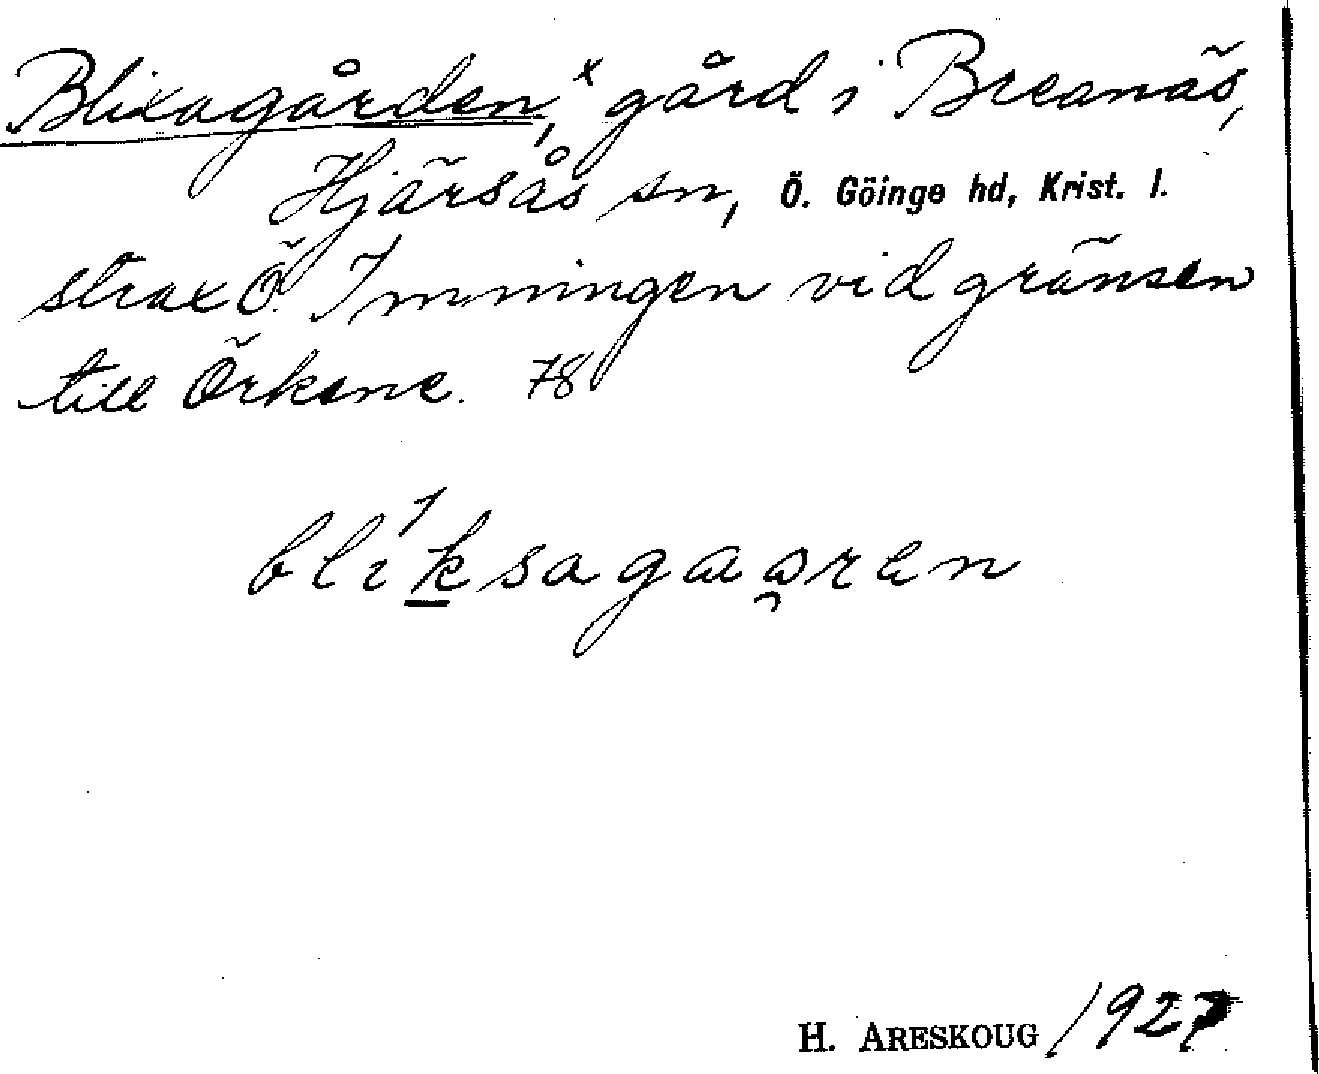 Blixagården,ˣ gård i Breanäs,
Hjärsås sn, Ö. Göinge hd, Krist. l.
strax Ö. Immingen vid gränsen
till Örkene. 78
bliksagaaren
H. ARESKOUG 1927